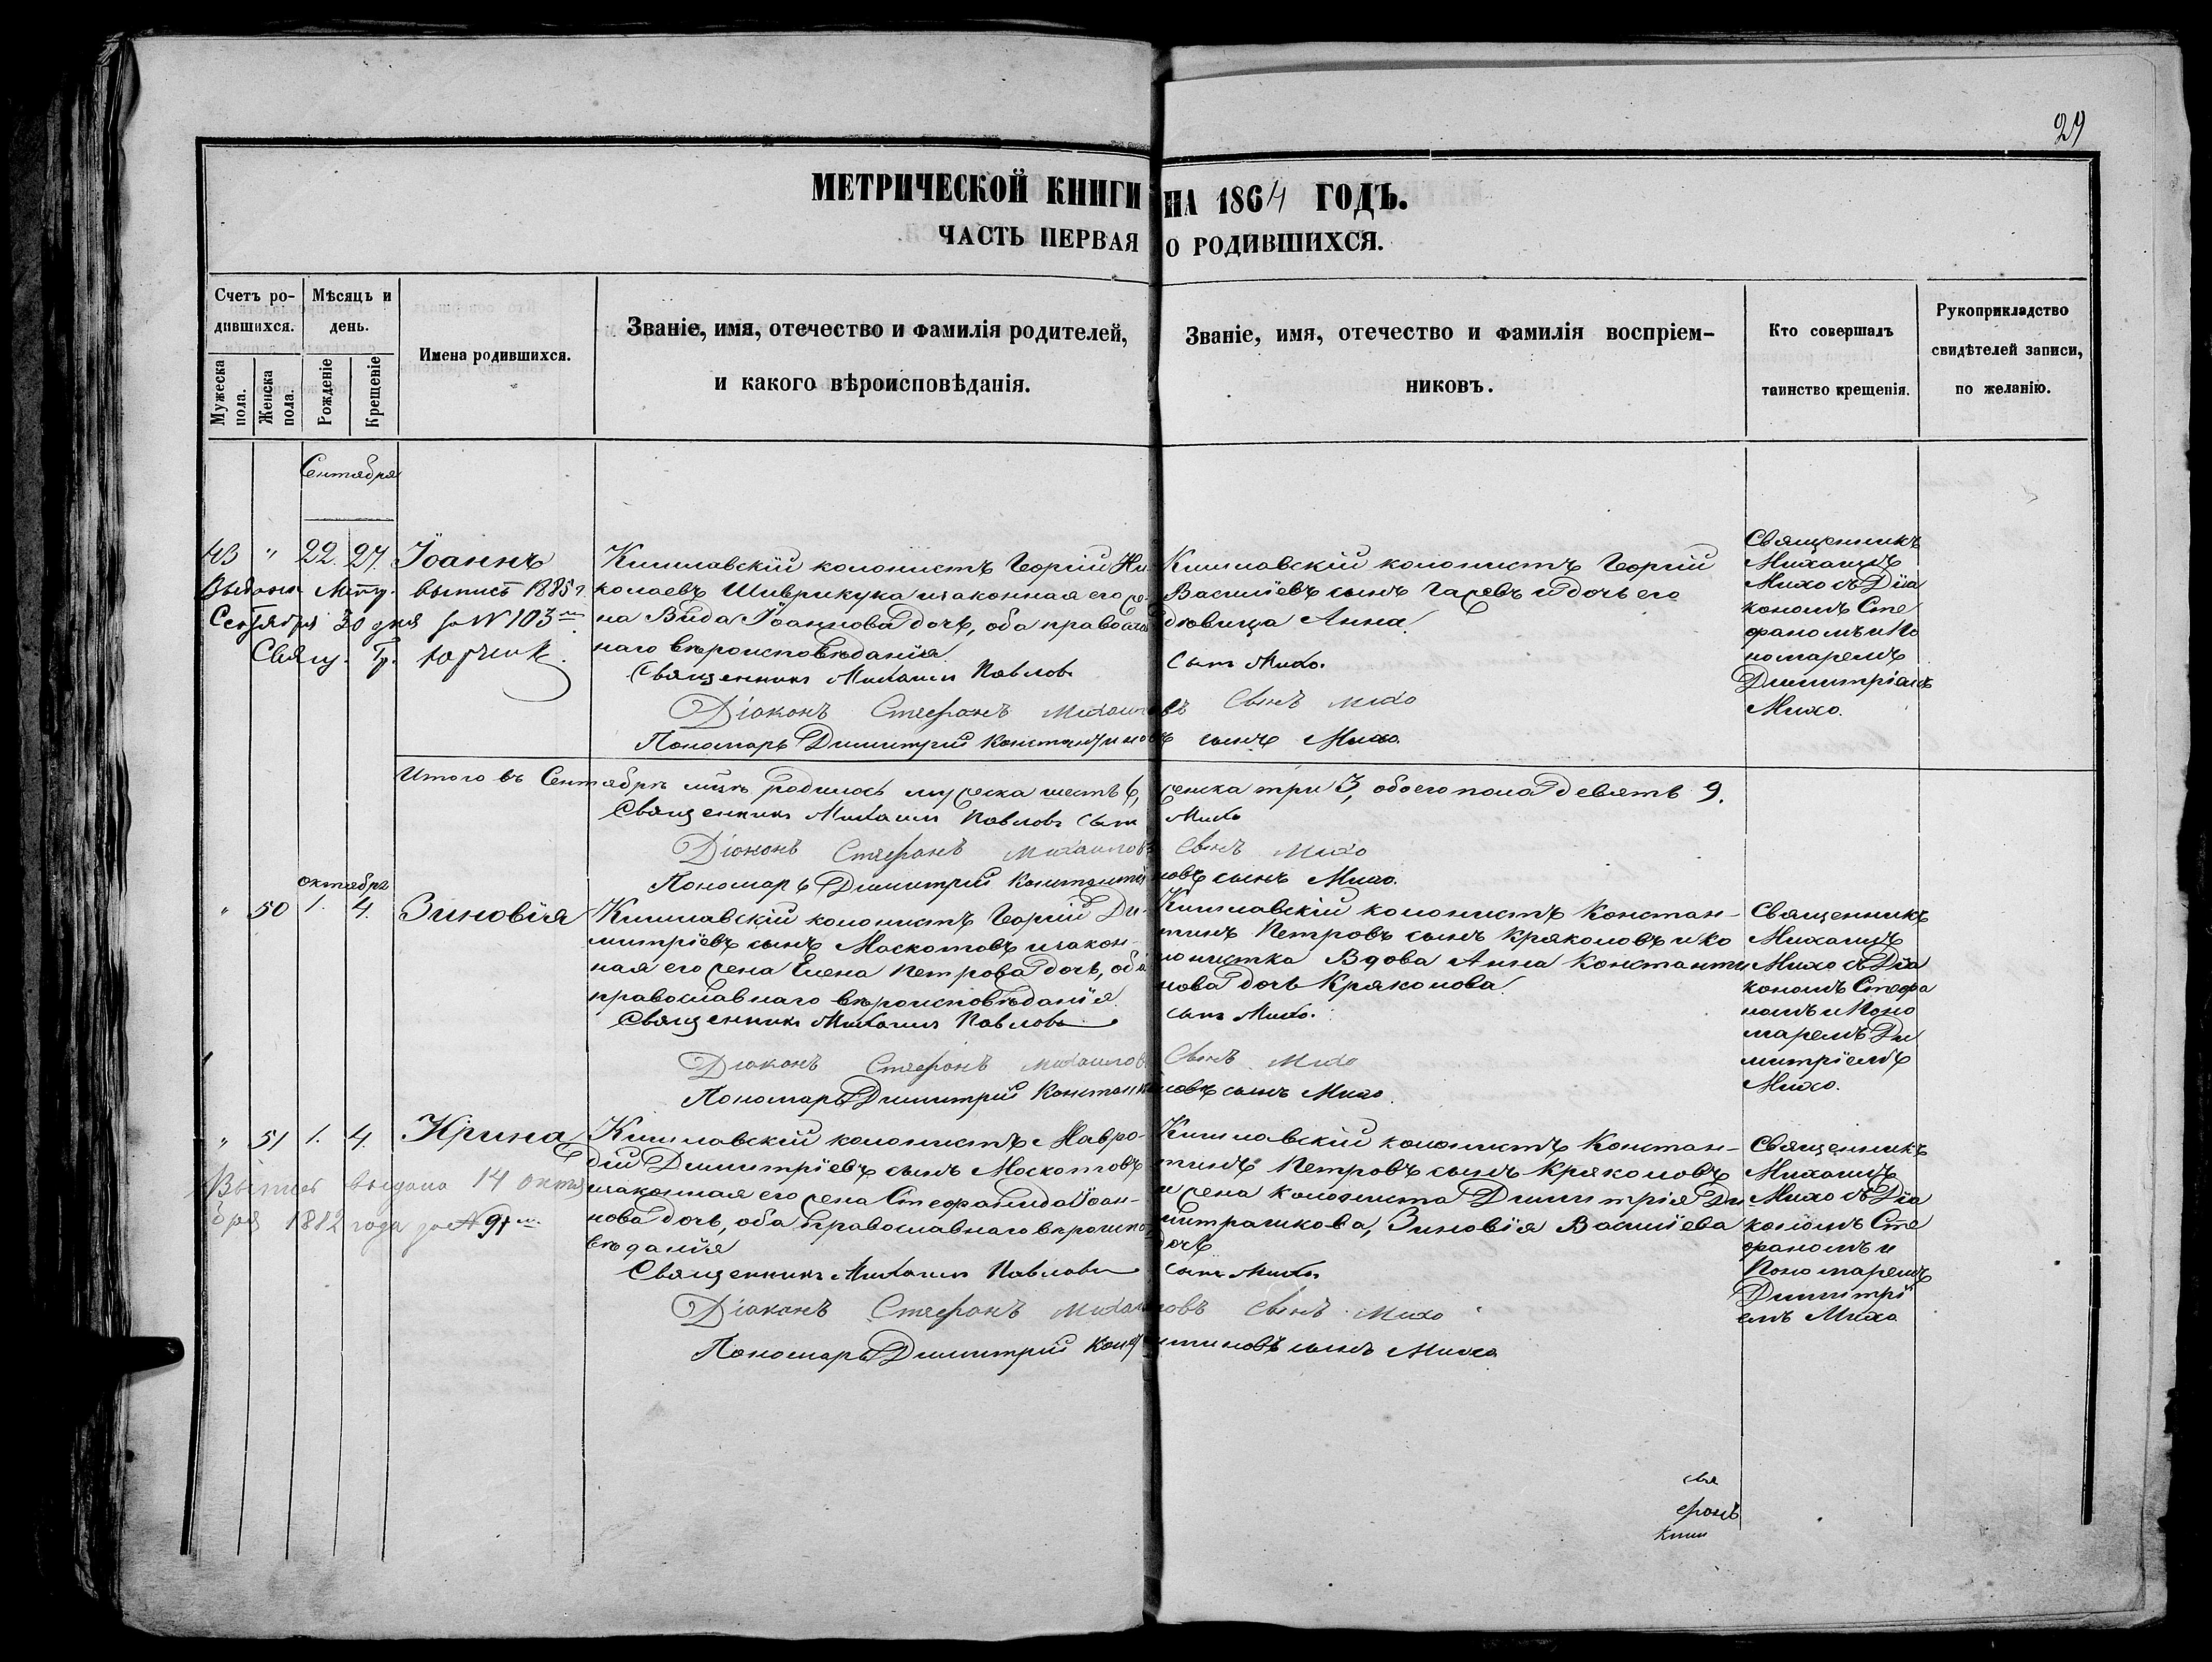 29
МЕТРИЧЕСКОЙ КНИГИ НА 1864 ГОДЪ.
ЧАСТЬ ПЕРВАЯ О РОДИВШИХСЯ.
Счетъ ро-
дившихся.
Мужеска пола.
Женска пола.
Мѣсяцъ и
день.
Рожденіе
Крещеніе
Имена родившихся.
Званіе, имя, отечество и фамилія родителей,
и какого вѣроисповѣданія.
Званіе, имя, отечество и фамилія воспріем-
никовъ.
Кто совершалъ
таинство крещенія.
Рукоприкладство
свидѣтелей записи,
по желанію.
Сентября
43 " 22. 27. Іоаннъ
Выдана Метр. выпись 1885 г.
Сентября 30 дня за № 103
Свящ. Гр.
Кишлавскій колонистъ Георгій Ни-
колаевъ Шиврикука и законная его же-
на Вида Іоаннова дочь, оба православ
наго вѣроисповѣданія.
Священникъ Михаилъ Павловъ сынъ Михо.
Діаконъ Стефанъ Михаиловъ сынъ Михо
Пономарь Димитрій Константиновъ сынъ Михо.
Кишлавскій колонистъ Георгій
Василіевъ сынъ Гаревъ и дочь его
дѣвица Анна.
Священникъ
Михаилъ
Михо съ Діа
кономъ Сте
фаномъ и По
номаремъ
Димитріемъ
Михо.
Итого въ Сентябрѣ мцѣ родилось мужеска шесть 6, женска три 3, обоего пола девять 9.
Священникъ Михаилъ Павловъ сынъ Михо
Діаконъ Стефанъ Михаиловъ сынъ Михо
Пономарь Димитрій Константиновъ сынъ Михо.
октября
" 50 1. 4. Зиновія
Кишлавскій колонистъ Георгій Ди-
митріевъ сынъ Маскотовъ и закон-
ная его жена Елена Петрова дочь, оба
православнаго вѣроисповѣданія.
Священникъ Михаилъ Павловъ сынъ Михо.
Діаконъ Стефанъ Михаиловъ сынъ Михо
Пономарь Димитрій Константиновъ сынъ Михо.
Кишлавскій колонистъ Констан-
тинъ Петровъ сынъ Кряколовъ и ко
лонистка Вдова Анна Константи
нова дочь Кряколова.
Священникъ
Михаилъ
Михо съ Діа
кономъ Стефа
номъ и Поно
маремъ Ди
митріемъ
Михо.
" 51 1. 4. Ирина
Выпись выдана 14 октя
бря 1882 года за № 91
Кишлавскій колонистъ Мавро-
дій Димитріевъ сынъ Москотовъ
и законная его жена Стефанида Іоан-
нова дочь, оба православнаго вѣроиспо
вѣданія
Священникъ Михаилъ Павловъ сынъ Михо.
Діаконъ Стефанъ Михаиловъ сынъ Михо
Пономарь Димитрій Константиновъ сынъ Михо
Кишлавскій колонистъ Констан-
тинъ Петровъ сынъ Кряколовъ
и жена колониста Димитрія Ди
митрашкова, Зиновія Василіева
дочь
Священникъ
Михаилъ
Михо съ Діа
кономъ Сте
фаномъ и
Пономаремъ
Димитрі
емъ Михо
свя
фанъ